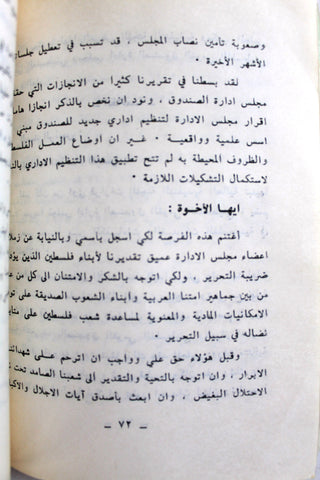 وصعوبة تأمين نصاب المجلس ، قد تسبب في تعطيل جلساته
الأشهر الأخيرة ٠
لقد بسطنا في تقريرنا كثيرا من الانجازات التي
مجلس ادارة الصندوق ، ونود ان نخص بالذكر انجازا
اقرار مجلس الادارة لتنظيم اداري جديد للصندوق مبني
اسس علمية وواقعية ٠ غير ان اوضاع العمل
والظروف المحيطة به لم تتح تطبيق هذا التنظيم الاداري
لاستكمال التشكيلات اللازمة ٠
ايها الأخوة :
أغتنم هذه الفرصة لكي اسجل بأسمي وبالنيابة عن
اعضاء مجلس الادارة عميق تقديرنا لأبناء فلسطين الذين
ضريبة التحرير ، ولكي اتوجه بالشكر والامتنان الى كل من
من بين جماهير امتنا العربية وأبناء الشعوب الصديقة على
الامكانيات المادية والمعنوية لمساعدة شعب فلسطين على
نضاله في سبيل التحرير ٠
وقبل هؤلاء حق علي وواجب ان اترحم على
الابرار ، وان اتوجه بالتحية والتقدير الى شعبنا الصامد تحت
الاحتلال البغيض ، وان ابعث بأصدق آيات الاجلال
— ٧٢ —